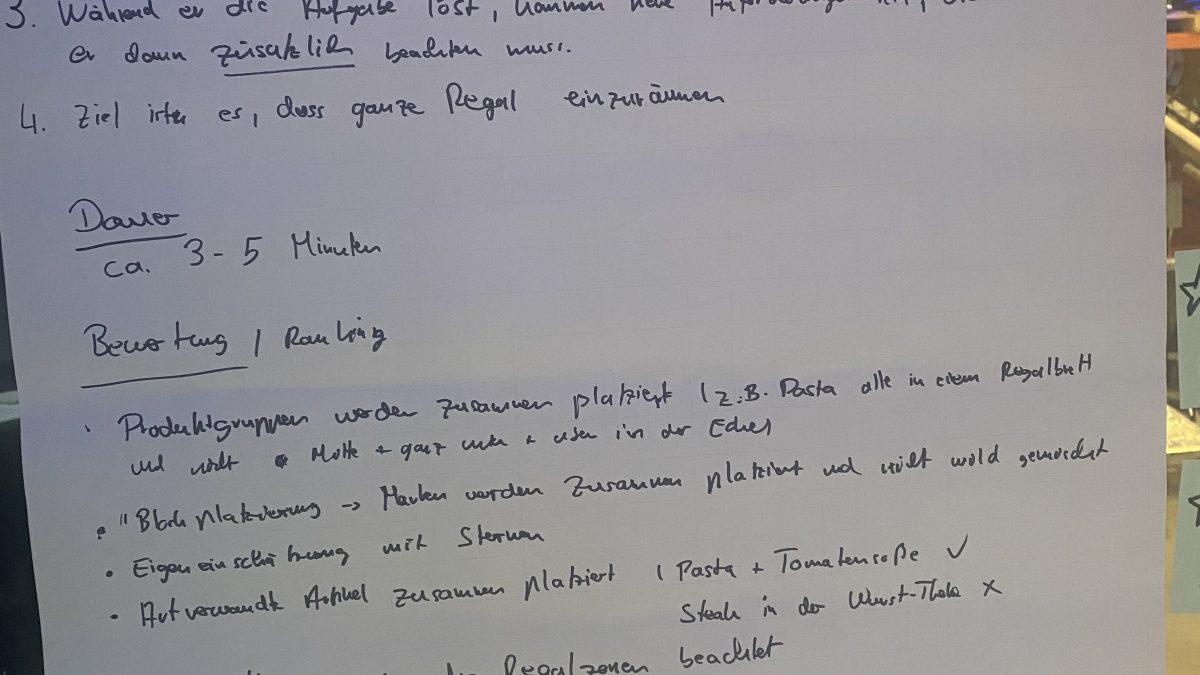 3. Während er die Aufgabe löst, kommen neue
er dann zusätzlich beachten muss.
4. Ziel ist es, dass ganze Regal einzuräumen
Dauer
ca. 3-5 Minuten
Bewertung / Ranking
· Produktgruppen werden zusammen platziert (z.B. Pasta alle in einem Regalbrett
und nicht Mitte + ganz unten + oben in der Ecke)
· "Block Platzierung -> Marken werden zusammen platziert und nicht wild gemischt
· Eigeneinschätzung mit Sternen
· Artverwandte Artikel zusammen platziert ( Pasta + Tomatensoße ✓
Steak in der Wurst-Theke X
Regalzonen beachtet